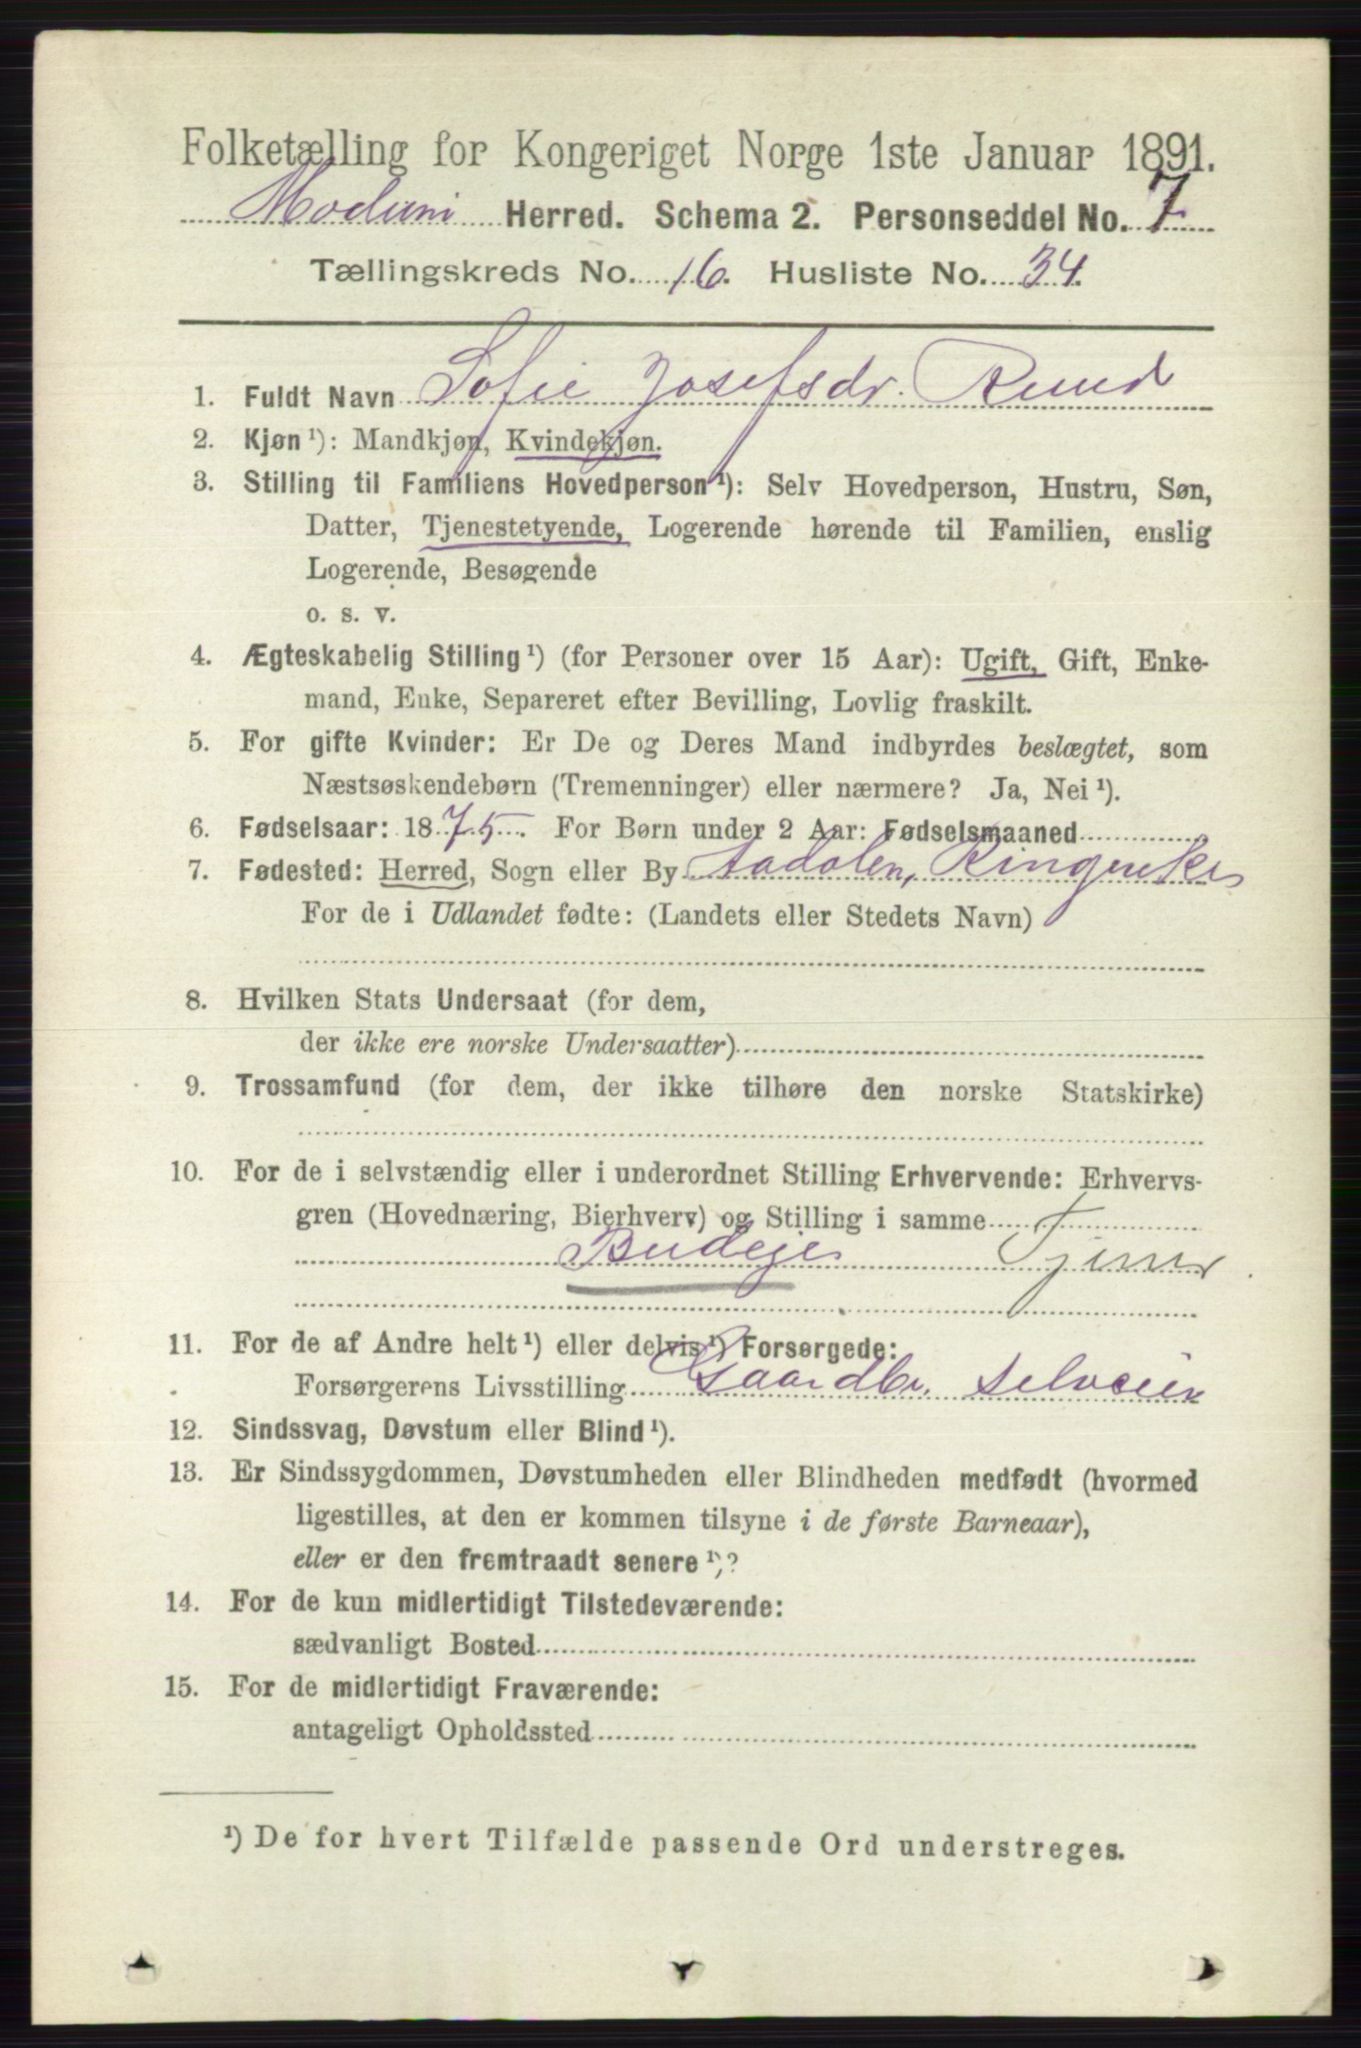 Folketælling for Kongeriget Norge 1ste Januar 1891.
Modum Herred. Schema 2. Personseddel No. 7
Tællingskreds No. 16. Husliste No. 34.
1. Fuldt Navn Sofie Josefsdr. Ruud
2. Kjøn ¹): Mandkjøn, Kvindekjøn.
3. Stilling til Familiens Hovedperson ¹): Selv Hovedperson, Hustru, Søn,
Datter, Tjenestetyende, Logerende hørende til Familien, enslig
Logerende, Besøgende
o. s. v.
4. Ægteskabelig Stilling ¹) (for Personer over 15 Aar): Ugift, Gift, Enke-
mand, Enke, Separeret efter Bevilling, Lovlig fraskilt.
5. For gifte Kvinder: Er De og Deres Mand indbyrdes beslægtet, som
Næstsøskendebørn (Tremenninger) eller nærmere? Ja, Nei ¹).
6. Fødselsaar: 1875. For Børn under 2 Aar: Fødselsmaaned
7. Fødested: Herred, Sogn eller By Aadalen, Ringerike
For de i Udlandet fødte: (Landets eller Stedets Navn)
8. Hvilken Stats Undersaat (for dem,
der ikke ere norske Undersaatter)
9. Trossamfund (for dem, der ikke tilhøre den norske Statskirke)
10. For de i selvstændig eller i underordnet Stilling Erhvervende: Erhvervs-
gren (Hovednæring, Bierhverv) og Stilling i samme
Budeje Tjener
11. For de af Andre helt ¹) eller delvis ¹) Forsørgede:
Forsørgerens Livsstilling Gaardbr. Selveier
12. Sindssvag, Døvstum eller Blind ¹).
13. Er Sindssygdommen, Døvstumheden eller Blindheden medfødt (hvormed
ligestilles, at den er kommen tilsyne i de første Barneaar),
eller er den fremtraadt senere ¹)?
14. For de kun midlertidigt Tilstedeværende:
sædvanligt Bosted
15. For de midlertidigt Fraværende:
antageligt Opholdssted
¹) De for hvert Tilfælde passende Ord understreges.